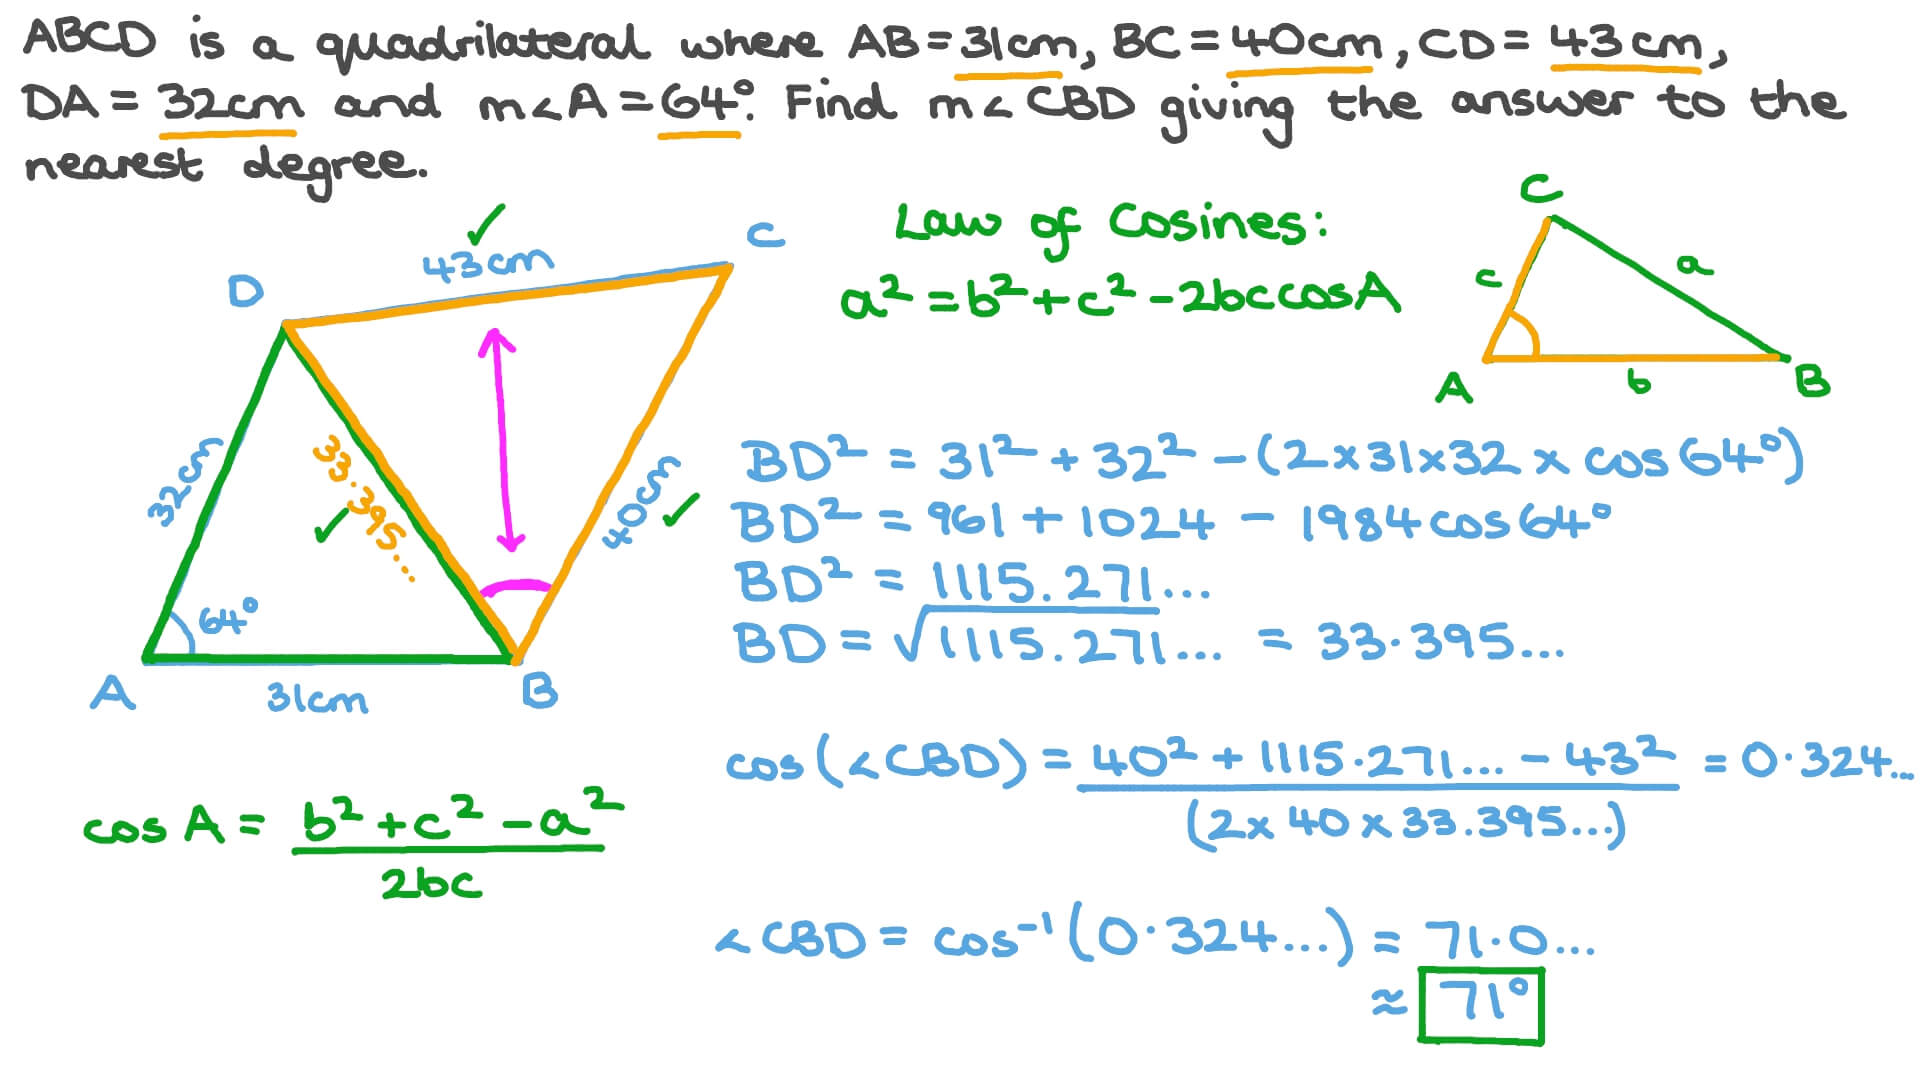 ABCD is a quadrilateral where AB = 31cm, BC = 40cm, CD = 43cm,
DA = 32cm and m∠A = 64°. Find m∠CBD giving the answer to the
nearest degree.
D
43cm ✓
C
32cm
33.395... ✓
40cm ✓
64°
A
31cm
B
Law of Cosines:
a² = b² + c² - 2bccosA
C
c
a
A
b
B
BD² = 31² + 32² - (2×31×32 × cos64°)
BD² = 961 + 1024 - 1984cos64°
BD² = 1115.271...
BD = √1115.271... = 33.395...
cos A = (b² + c² - a²)/2bc
cos(∠CBD) = 40² + 1115.271... - 43² / (2×40×33.395...) = 0.324...
∠CBD = cos⁻¹(0.324...) = 71.0...
≈ 71°